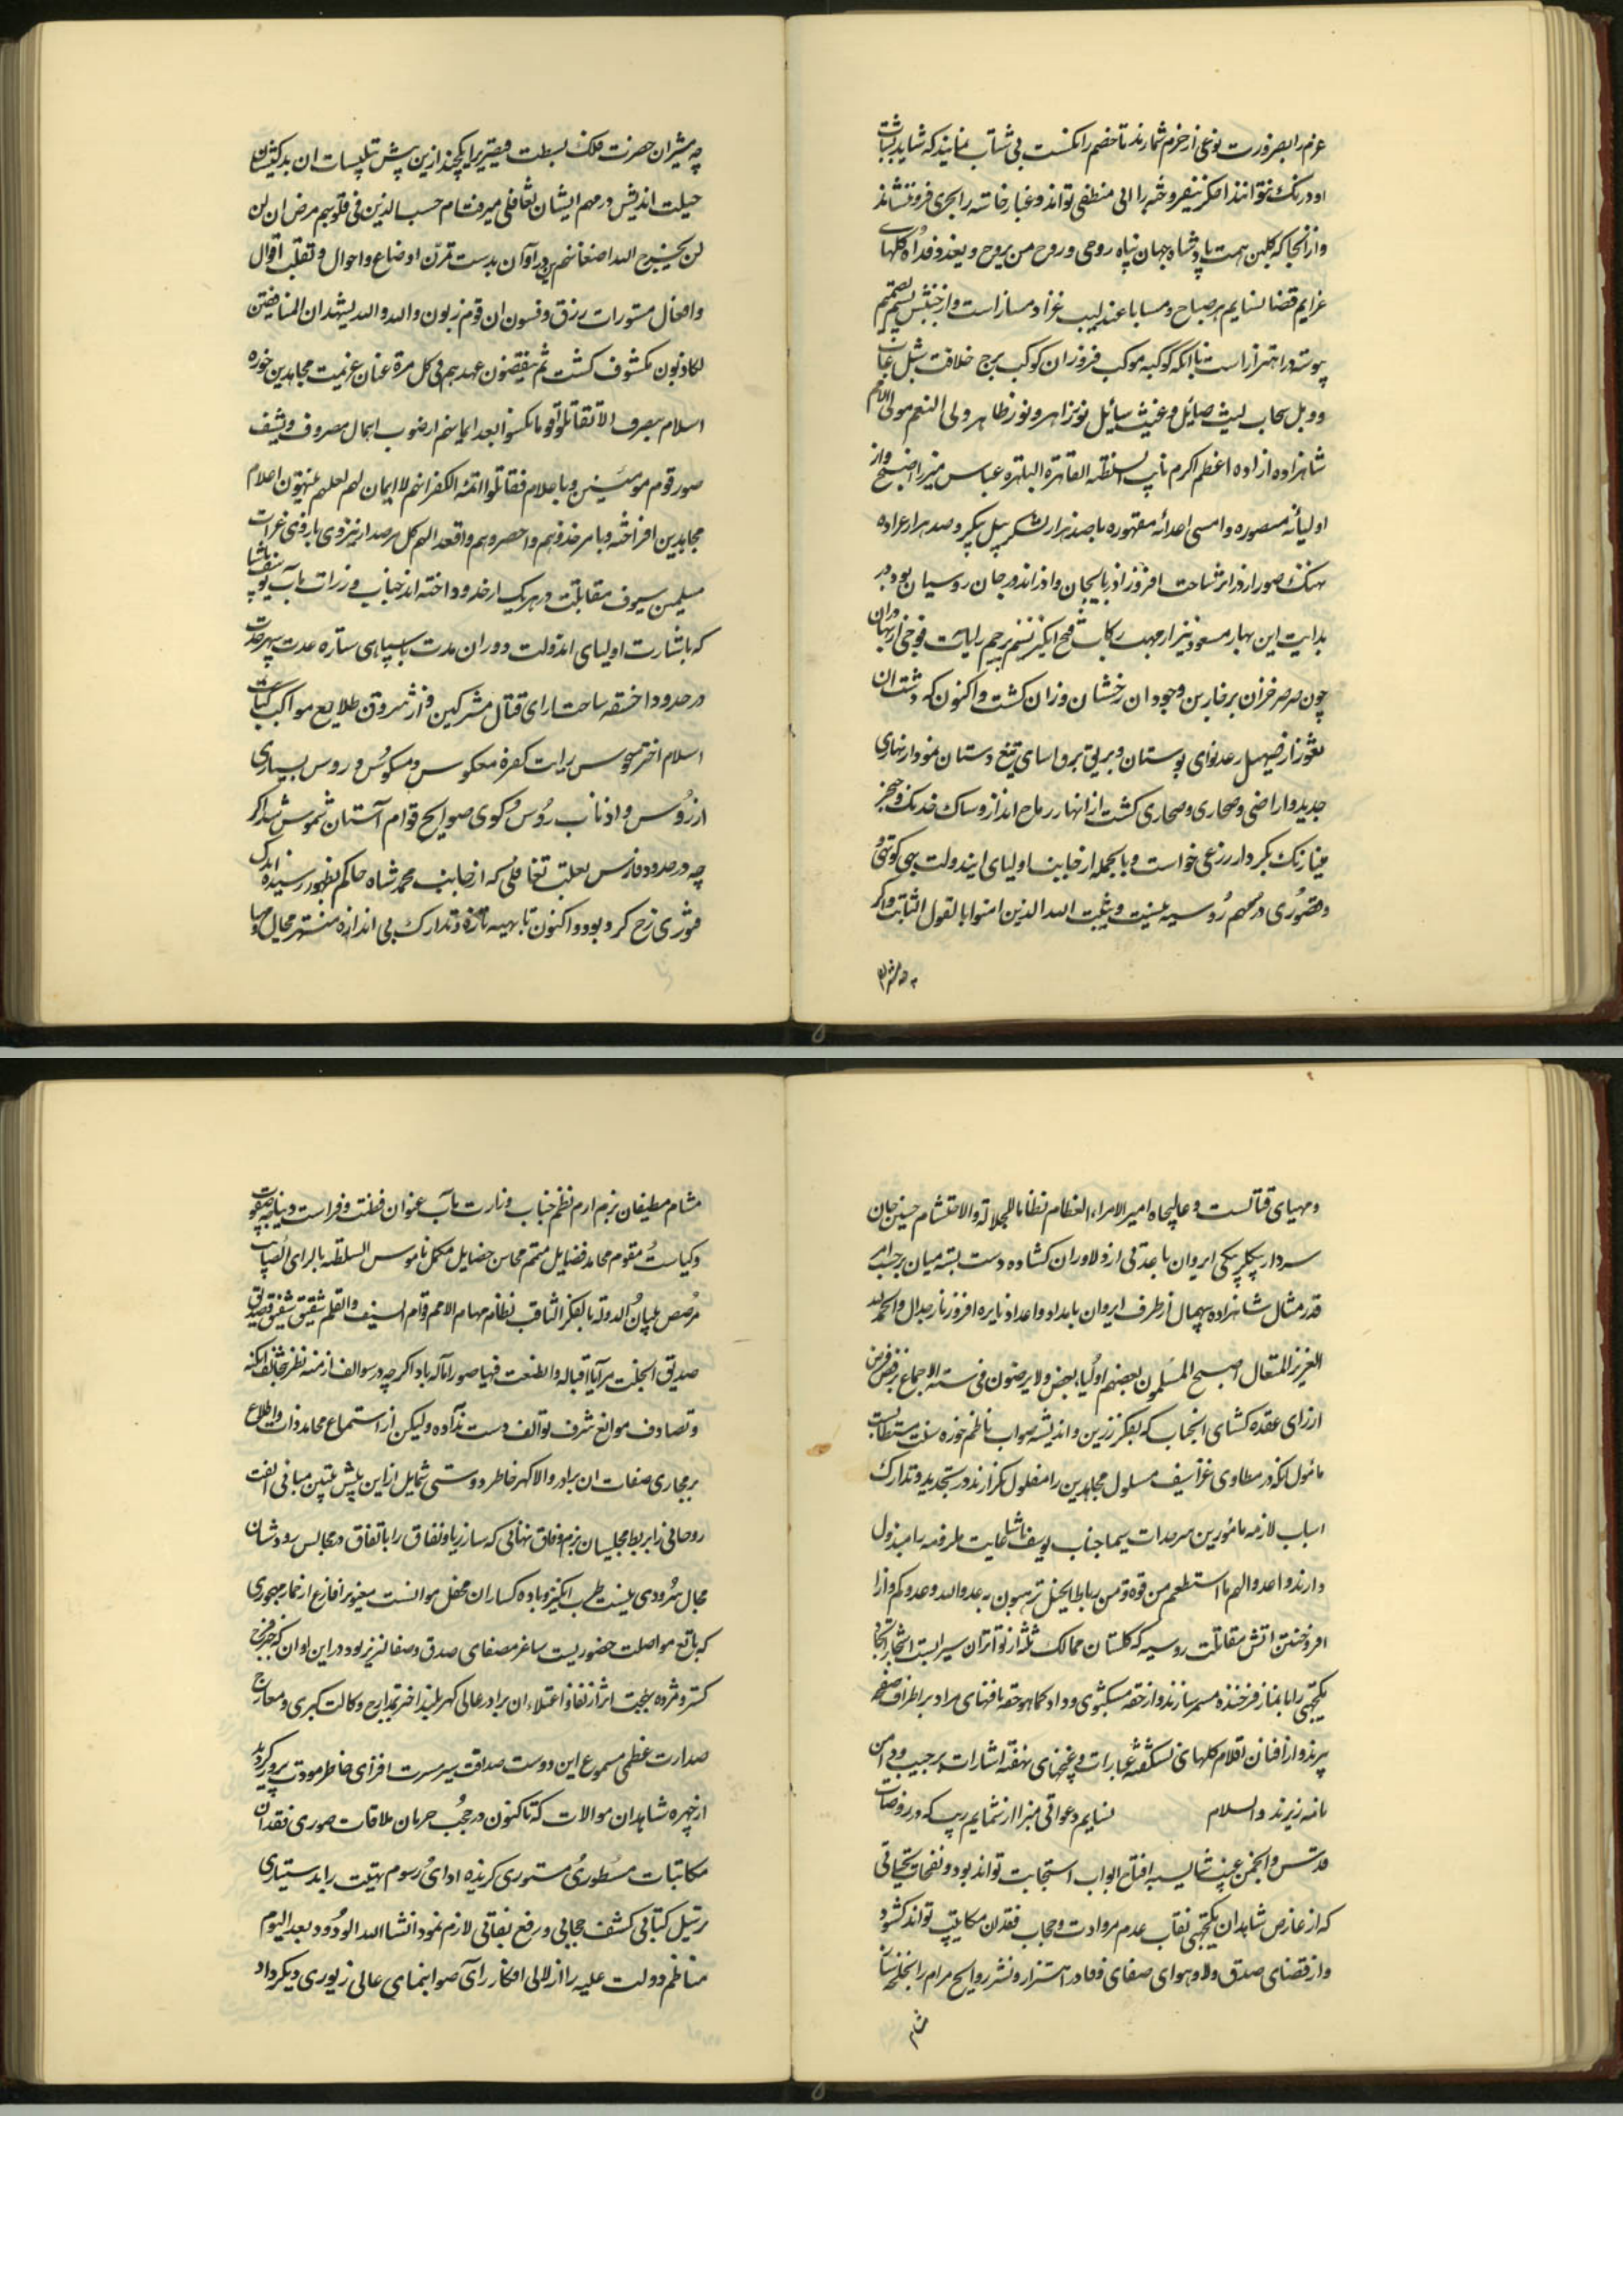 عزم را بضرورت نوعی از حزم شمارند تا خصم را نکست بی شتاب نمایند که شاید شتاب
او درنک نتوانند اکر نیفروخته را الی منطفی تواند و غبار خاسته را بجری فرو نشاند
و از آنجا که کلبن همت پادشاه جهان پناه روحی و روح من یروح و یغدو فداه کلهای
عزایم قضا نسایم هر صباح و مسا با عندلیب غزا دمساز است و از جنبش نسیم تصمیم
پیوسته در اهتزاز است با آنکه کوکبه موکب فروزان کوکب برج خلافت شبل غاب
و وبل سحاب لیث صایل و غیث سایل نور زاهر و نور ظاهر ولی النعم مولی الامم
شاهزاده ازاده اعظم اکرم نایب السلطنه القاهرة الباهره عباس میرزا اضیح و از
اولیائه منصوره و امسی اعدائه مقهوره با صد هزار لشکر پیل پیکر و صد هزار عراده
نهنک صور اژدر اثر ساحت افروز اذربایجان و اذر انداز جان روسیان بود و در
بدایت این بهار مسعود نیز از مهب رکاب فتح انکیز نسیم پرچم رایات فوجی از بهادران
چون صرصر خزان بر خاربن وجودان رخشان وزان کشت و اکنون که دشت ان
ثغور از صهیل رعد نوای بوستان و بریق برق اسای تیغ دستان نمودار بهاری
جدید و اراضی و صحاری و صحاری کشت از انهار رماح انداز و ساک خدنک و خنجر
میناو نک بکردار زرعی خواست و بالجمله از جانب اولیای ایندولت بهی کوتهی و
و قصوری در مهم روسیه نیست و یثبت الله الذین امنوا بالقول الثابت و اکر
چه مشیران
چه مشیران حضرت فلک بسطت قیصریرا یکچند ازین پیش تلبیسات ان بدکیشان
حیلت اندیش در مهم ایشان تغافلی میرفت ام حسب الذین فی قلوبهم مرض ان لن
لن یخرج الله اضغانهم درین اوان بدست قرن اوضاع و احوال و تقلب اقوال
و افعال مستورات رزق و فسون ان قوم زبون والله والله یشهد ان المنافقین
لکاذبون مکشوف کشت ثم ینقضون عهدهم فی کل مرة عنان عزیمت مجاهدین حوزه
اسلام بصرف الا تقاتلوا قوما نکثوا ایمانهم از صوب اهمال مصروف و یشف
صدور قوم مؤمنین و با علام فقاتلوا ائمة الکفر انهم لا ایمان لهم لعلهم ینتهون اعلام
مجاهدین افراخته و بامر خذوهم و احصروهم واقعدوا لهم کل مرصد از نیروی بازوی غزات
مسلمین سیوف مقابلت در هر یک از حدود اخته اند جناب وزرات مآب یوسف پاشا
که باشارت اولیای اندولت دوران مدت با سپاهی ستاره عدت سپهر حدت
در حدود اخسقه ساحت ارای قتال مشرکین و از شروق طلایع مواکب
اسلام اختر نحوس رایت کفره معکوس و منکوس و روس بسیاری
از روس و اذناب روس کوی صوالج قوام آستان شموس شد اکر
چه در حدود فارس بعلت تغافلی که از جانب محمد شاه حاکم بظهور رسیده اندک
فتوری رخ کرده بود و اکنون با تهیه تازه و تدارک بی اندازه منتهز مجال
و مهیای قتالست و عالیجاه امیر الامراء العظام نظاما للجلالة و الاحتشام حسین خان
سردار بیکلربیکی ایروان با عدتی از دلاوران کشاده دست بسته میان بر حسب امر
قدر مثال شاهزاده بیهمال از طرف ایروان بامداد و اعداد نایره افروز نار جدال والحمد لله
العزیز المتعال اصبح المسلمون بعضهم اولیاء بعض ولا یرضون فی سنة الاجماع برفض فرض
از رای عقده کشای انجناب که بفکر زرین و اندیشه صواب ناظم حوزه سنت مستطاب است
مأمول انکه در مطاوی غزا سیف مسلول مجاهدین را مفلول نکذارند در تجدید و تدارک
اسباب لازمه مأمورین سرحدات سیما جناب یوسف پاشا غایت ملزومه را مبذول
دارند و اعدوا لهم ما استطعتم من قوة و من رباط الخیل ترهبون به عدو الله و عدوکم و از
افروختن اتش مقاتلت روسیه که کلستان ممالک ثلثه از تو اتران سیرابست اشجار اتحاد
یکجهتی را باثمار فرخنده مثمر سازند و از حقه مشکبوی وداد کماهو حقه نافهای مراد بر اطراف صفحه
پرند و از افنان اقلام کلهای نشکفته عبارات و غنچهای نهفته اشارات بر جیب و دامن
نامه ریزند والسلام نسایم دعواتی مبرا از شمایم ریب که در روضات
قدس و انجمن غیب شایسته افتتاح ابواب استجابت تواند بود و نفحات تحیاتی
که از عارض شاهدان یکجهتی نقاب عدم مراودت و حجاب فقدان مکاتیب تواند کشود
و از فضای صدق و لا و هوای صفای وفا در اهتزاز و نشر روایح مرام را بلخلخه سا
مشام
مشام مطیفان بزم ارم نظم جناب وزارت مآب عنوان فطنت و فراست دیباجه صفوت
و کیاست مقوم محامد فضایل متمم محاسن خصایل مکمل ناموس السلطنه بالرای الصایب
مرصص بنیان الدوله بالفکر الثاقب نظام مهام الامم قوام السیف و القلم شقیق شفیق صدیق
صدیق انجلت مرآیا اقباله و انطبعت فیها صور آماله باد اکر چه در سوالف ازمنه نظر بتخالف امکنه
و تصادف موانع شرف توالف دست نداده ولیکن از استماع محامد ذات و اطلاع
بر مجاری صفات ان برادر والا کهر خاطر دوستی شمایل ازین پیش بتین مبانی الفت
روحانی را بربط مجلسیان بزم وفاق نهانی که ساز ریا و نفاق را باتفاق در مجالس سرودشان
مجال سرودی نیست طرب انکیز و باده کساران محفل موانست معنویرا فارغ از خمار مهجوری
که تابع مواصلت حضوریست ساغر مصفای صدق و صفا لبریز بود در این اوان که خبر فرح
کستر و مژده بهجت اثر از نفاذ و اعتلاء ان برادر عالی کهر بلند اختر بمدارج وکالت کبری و معارج
صدارت عظمی مسموع این دوست صداقت سیر مسرت افزای خاطر مودت پرور کردید
از چهره شاهدان موالات که تاکنون در حجب حرمان ملاقات صوری فقدان
مکاتبات مسطوری مستوری کزیده ادای رسوم تهنیت را بدستیاری
ترتیل کتابی کشف حجابی و رفع نقابی لازم نمود انشا الله الودود بعد الیوم
مناظم دولت علیه را از لالی افکار رآی صوابنمای عالی زیوری دیکر داد